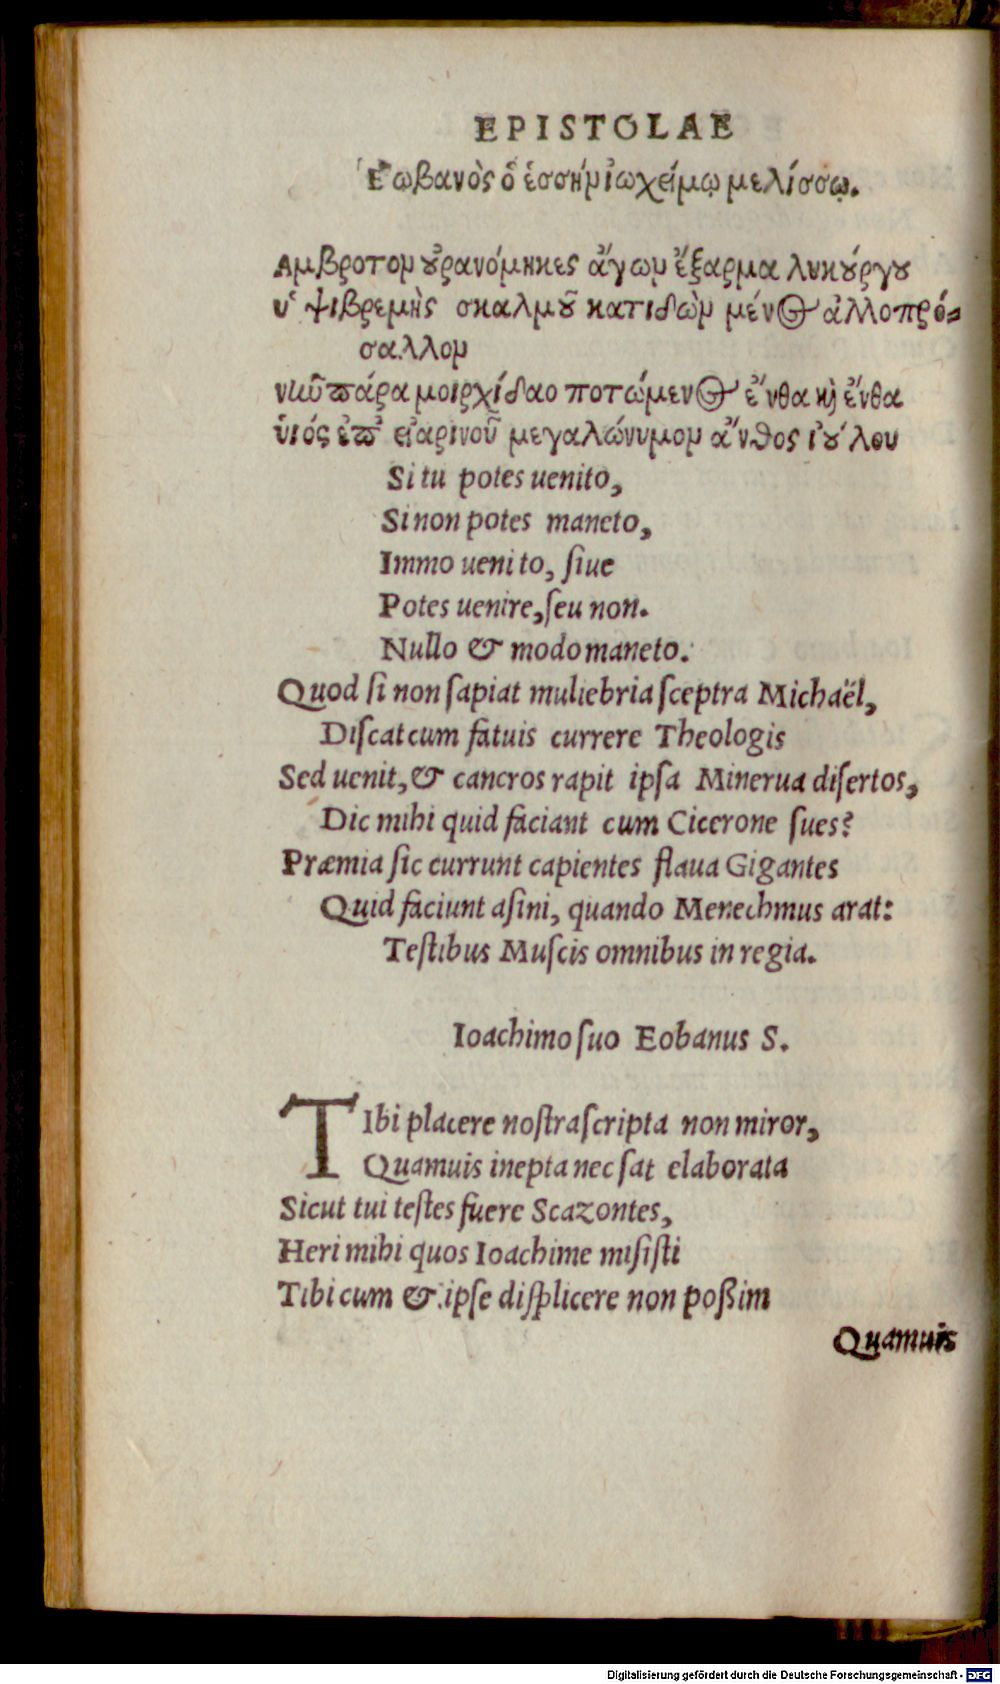 EPISTOLAE
Ἐωβανὸς ὁ ἑσσὴν ἰωχείμῳ μελίσσῳ.
Αμβροτον οὐρανόμηκες ἄγων ἔξαρμα λυκούργου
ὑψιβρεμὴς σκαλμοῦ κατιδὼν μένος ἀλλοπρό-
σαλλον
νικῶ παρα μοιρχίδαο ποτώμενος ἔνθα καὶ ἔνθα
ὑιός ἐπ' εἰαρινοῦ μεγαλώνυμον ἄνθος ἰούλου
Si tu potes uenito,
Si non potes maneto,
Immo uenito, ſiue
Potes uenire, ſeu non.
Nullo & modo maneto.
Quod ſi non ſapiat muliebria ſceptra Michaël,
Diſcat cum fatuis currere Theologis
Sed uenit, & cancros rapit ipſa Minerua diſertos,
Dic mihi quid faciant cum Cicerone ſues?
Præmia ſic currunt capientes flaua Gigantes
Quid faciunt aſini, quando Menechmus arat:
Teſtibus Muſcis omnibus in regia.
Ioachimo ſuo Eobanus S.
TIbi placere noſtra ſcripta non miror,
Quamuis inepta nec ſat elaborata
Sicut tui teſtes fuere Scazontes,
Heri mihi quos Ioachime miſiſti
Tibi cum & ipſe diſplicere non poßim
Quamuis
Digitalisierung gefördert durch die Deutsche Forschungsgemeinschaft - DFG